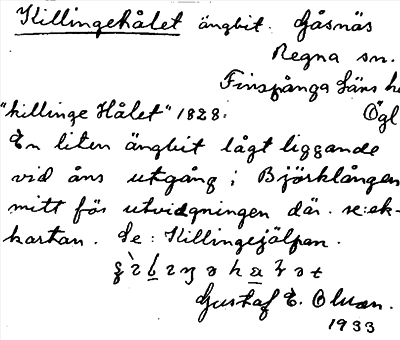 Killingehålet ängbit. Gåsnäs
Regna sn.
Finspånga läns h
"killinge Hålet" 1828. Ögl
En liten ängbit lågt liggande
vid åns utgång i Björklången
mitt för utvidgningen där. se: ek-
kartan. Se: Killingejälpen.
Gustaf E. Olsson.
1933